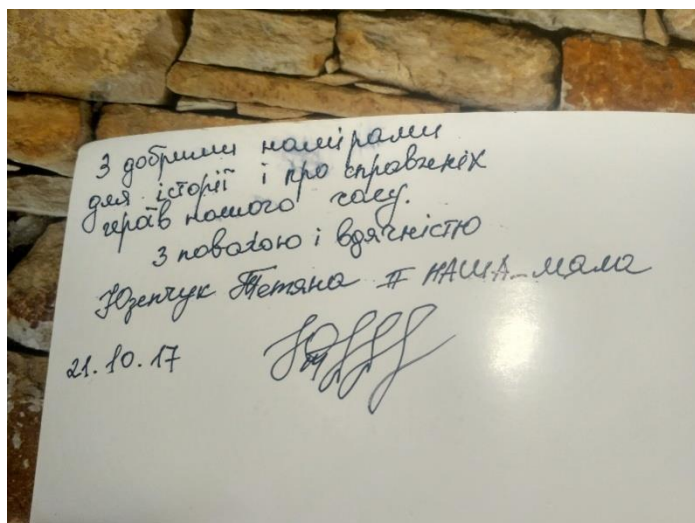 З добрими намірами
для історії і про справжніх
героїв нашого часу.
З повагою і вдячністю
Юзепчук Тетяна # НАША_мама
21.10.17